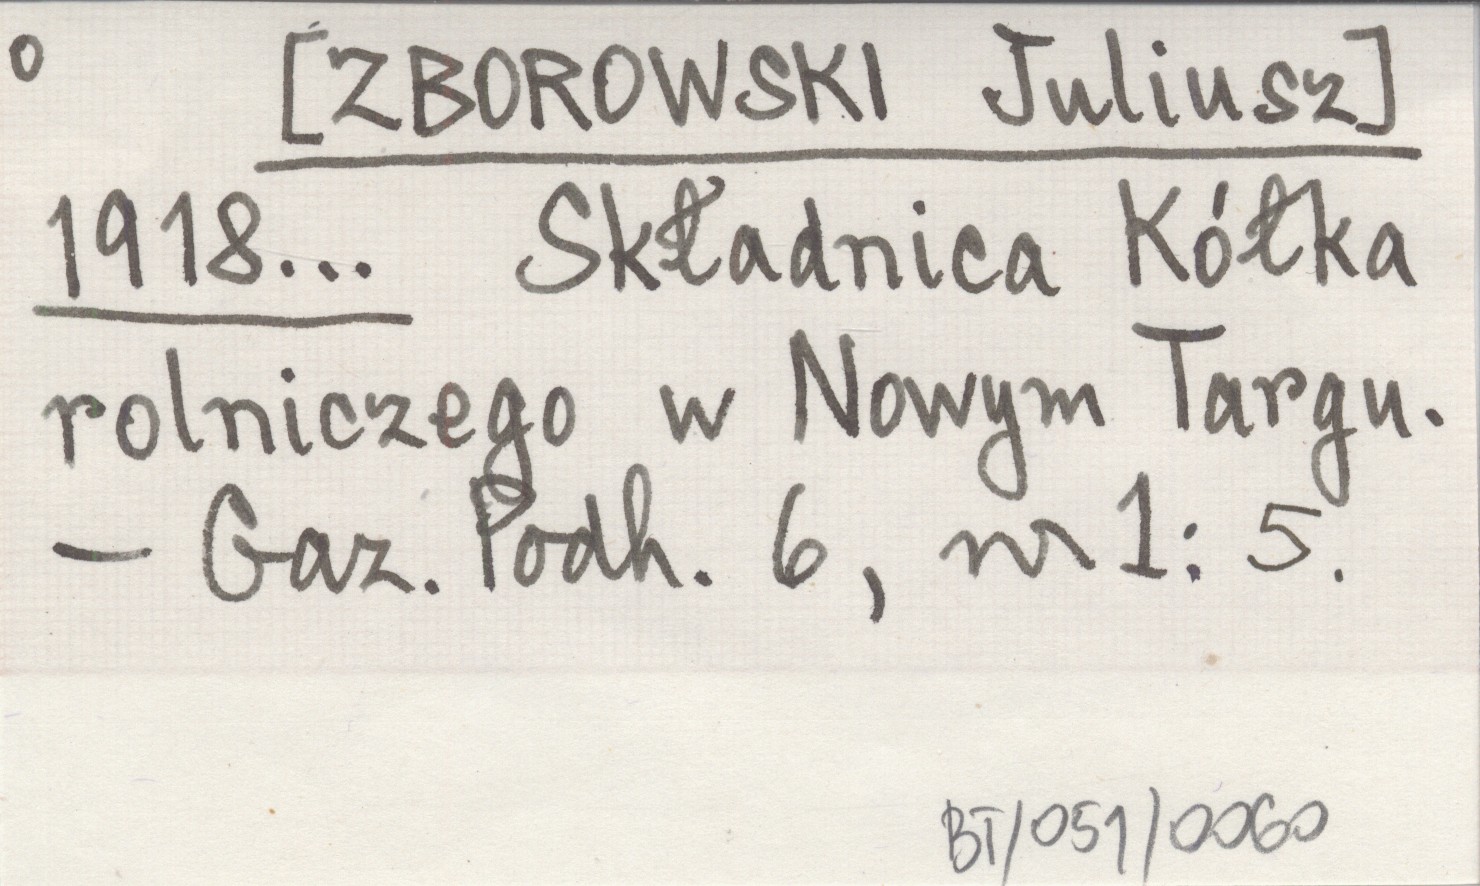 o [ZBOROWSKI Juliusz]
1918... Składnica Kółka
rolniczego w Nowym Targu.
— Gaz. Podh. 6, nr 1: 5.
BT/051/0060